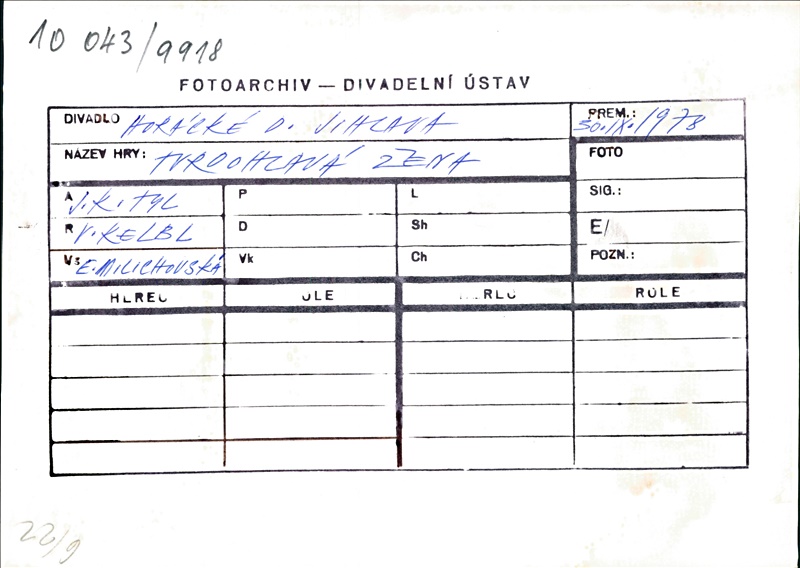 10 043/9918
FOTOARCHIV — DIVADELNÍ ÚSTAV
DIVADLO HORÁCKÉ D. JIHLAVA
PREM.: 30.IX./1978
NÁZEV HRY: TVRDOHLAVÁ ŽENA
FOTO
A J.K.TYL
P
L
SIG.:
R V.KELBL
D
Sh
E/
Vs E.MILICHOVSKÁ
Vk
Ch
POZN.:
HEREC
ROLE
22/9